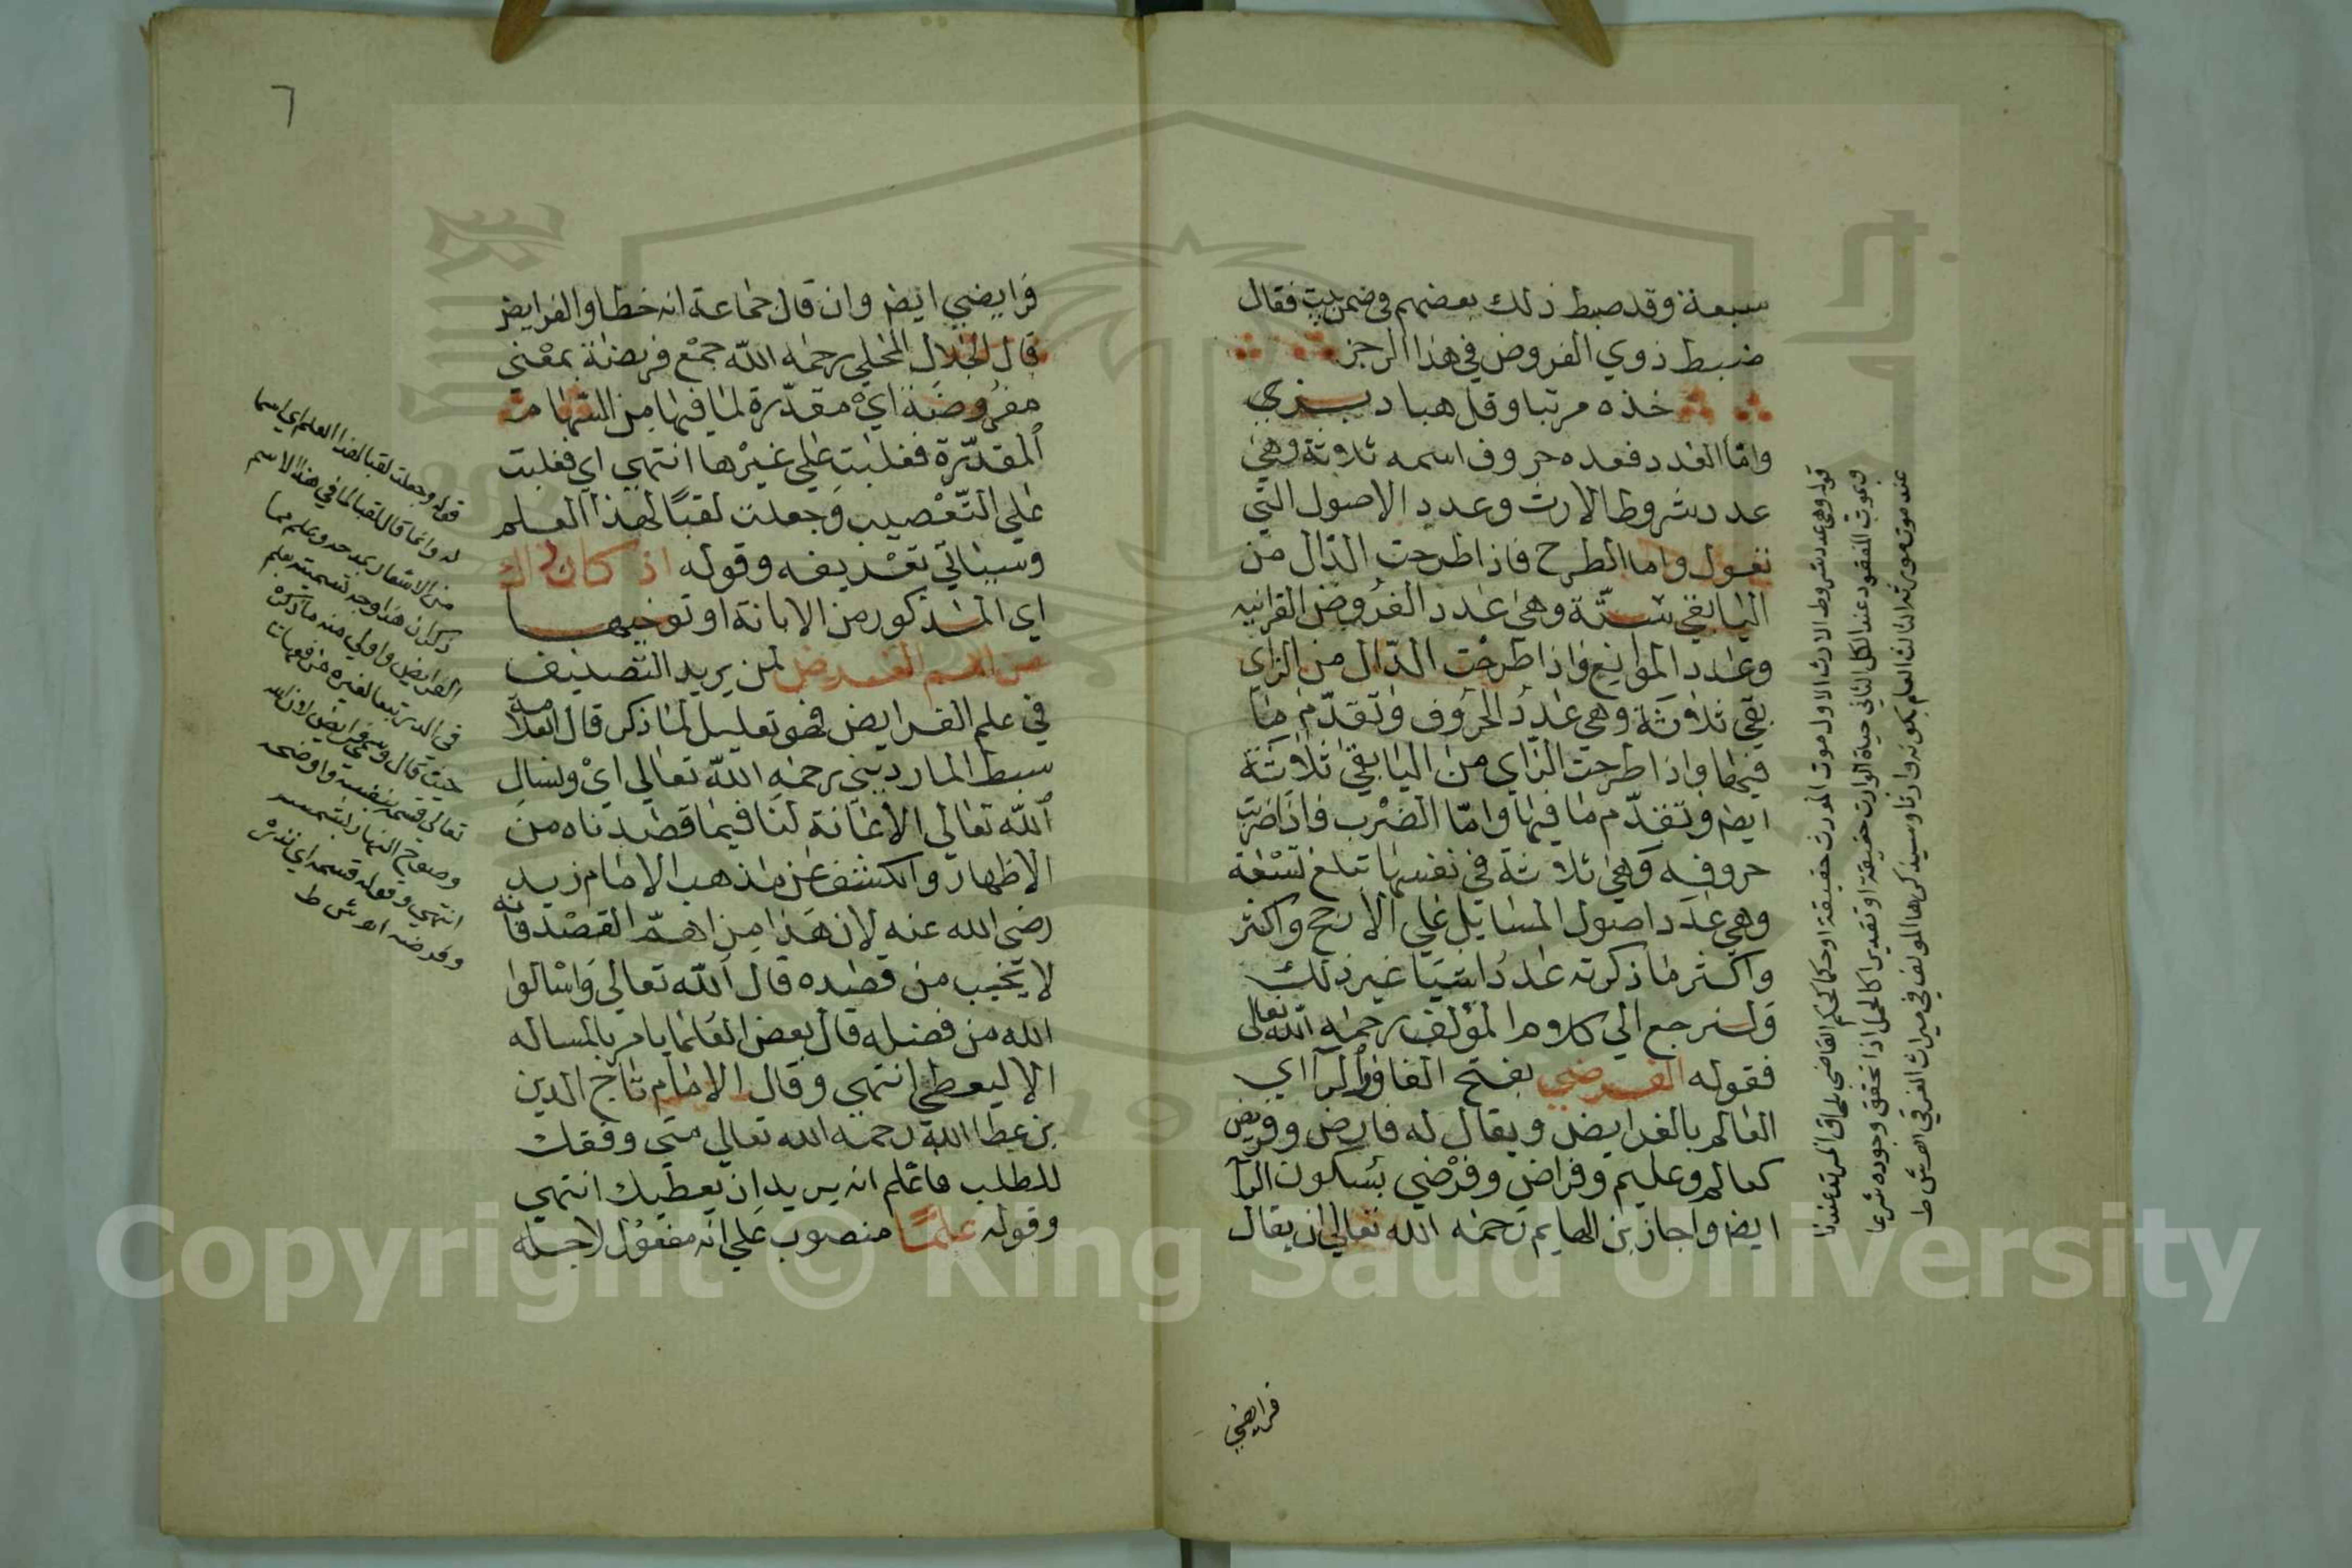 سبعة وقد ضبط ذلك بعضهم في ضمن بيت فقال
ضبط ذوي الفروض في هذا الرجز
خذه مرتبا وقل هبادبز
واما العدد فعده حروف اسمه ثلاثة وهي
عدد شروط الارث وعدد الاصول التي
تعول واما الطرح فاذا طرحت الدال من
اليا بقي ستة وهي عدد الفروض القرانيه
وعدد الموانع واذا طرحت الدال من الزاي
بقي ثلاثة وهي عدد الحروف وتقدم ما
فيها واذا طرحت الزاي من اليا بقي ثلاثة
ايض وتقدم ما فيها واما الضرب فاذا ضربت
حروفه وهي ثلاثة في نفسها تبلغ تسعة
وهي عدد اصول المسايل علي الارجح واكثر
واكثر ما ذكرته عدد اشيا غير ذلك
ولنرجع الي كلام المؤلف رحمه الله تعالى
فقوله الفرضي بفتح الفا والرا اي
العالم بالفرايض ويقال له فارض وفريض
كعالم وعليم وفراض وفرضي بسكون الرا
ايض واجاز بن الهايم رحمه الله تعالي ان يقال
فرايضي
قوله وهي عدد شروط الارث الاول موت المورث حقيقة او حكما كحكم القاضي بلحاق المرتد عندنا
وبموت المفقود عند الكل الثاني حياة الوارث حقيقة او تقديرا كالحمل اذا تحقق وجوده شرعا
عند موت مورثه الثالث العلم بكونه وارثا وسيذكرها المولف في ميراث الغرقي اه ش ط
٦
فرايضي ايض وان قال جماعة انه خطا والفرايض
قال الجلال المحلي رحمه الله جمع فريضة بمعنى
مفروضة اي مقدرة لما فيها من السهام
المقدرة فغلبت علي غيرها انتهي اي فغلبت
علي التعصيب وجعلت لقبا لهذا العلم
وسياتي تعريفه وقوله اذ كان ذاك
اي المذكور من الابانة او توخيها
من اهم الغرض لمن يريد التصنيف
في علم الفرايض فهو تعليل لما ذكر قال العلامة
سبط المارديني رحمه الله تعالي اي ونسال
الله تعالي الاعانة لنا فيما قصدناه من
الاظهار والكشف عن مذهب الامام زيد
رضي الله عنه لان هذا من اهم القصد فانه
لا يخيب من قصده قال الله تعالي واسالوا
الله من فضله قال بعض العلما يامر بالمساله
الا ليعطي انتهي وقال الامام تاج الدين
بن عطا الله رحمه الله تعالي متي وفقك
للطلب فاعلم انه يريد ان يعطيك انتهي
وقوله علما منصوب علي انه مفعول لاجله
قوله وجعلت لقبا لهذا العلم اي اسما
له وانما قال لقبا لما في هذا الاسم
من الاشعار بمدح وعلم مما
ذكر ان هذا وجه تسميته بعلم
الفرايض واولي منه ما ذكره
حيث قال وسمي فرايض لان الله
تعالي قسمه بنفسه واوضحه
وضوح النهار بشمسه
انتهي وقوله قسمه اي قدره
وفرضه اه ش ط